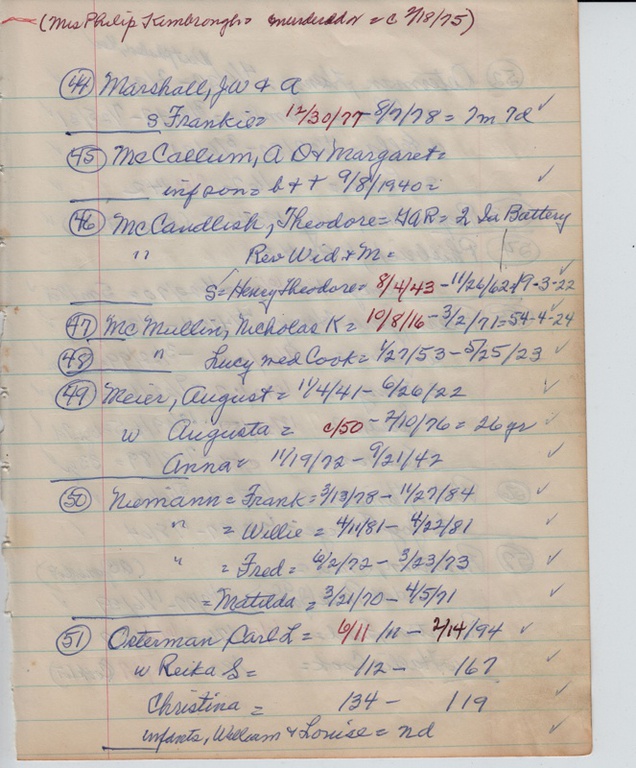 (Mrs Philip Kimbrough = murdered or = c 2/18/75)
(44) Marshall, JW & A
S Frankie = 12/30/77 - 8/7/78 = 7m 7d ✓
(45) McCallum, A D & Margaret =
inf son = b & + 9/8/1940 = ✓
(46) McCandlish, Theodore = GAR = 2 Ia Battery
" Rev Wid & M =
S = Henry Theodore = 8/4/43 - 11/26/62 = 19-3-22
(47) McMullin, Nicholas K = 10/8/16 - 3/2/71 = 54-4-24
(48) " Lucy med Cook = 1/27/53 - 5/25/23 ✓
(49) Meier, August = 11/4/41 - 6/26/22 ✓
w Augusta = c/50 - 7/10/76 = 26 yr ✓
Anna = 11/19/72 - 9/21/42 ✓
(50) Niemann = Frank = 3/13/78 - 11/27/84 ✓
" = Willie = 4/11/81 - 4/22/81 ✓
" = Fred = 6/2/72 - 3/23/73 ✓
= Matilda = 3/21/70 - 4/5/71 ✓
(51) Osterman Carl L = 6/11 /11 - 2/14/94 ✓
w Reika S = /12 - 167 ✓
Christina = 134 - 119 ✓
infants, William & Louise = nd ✓